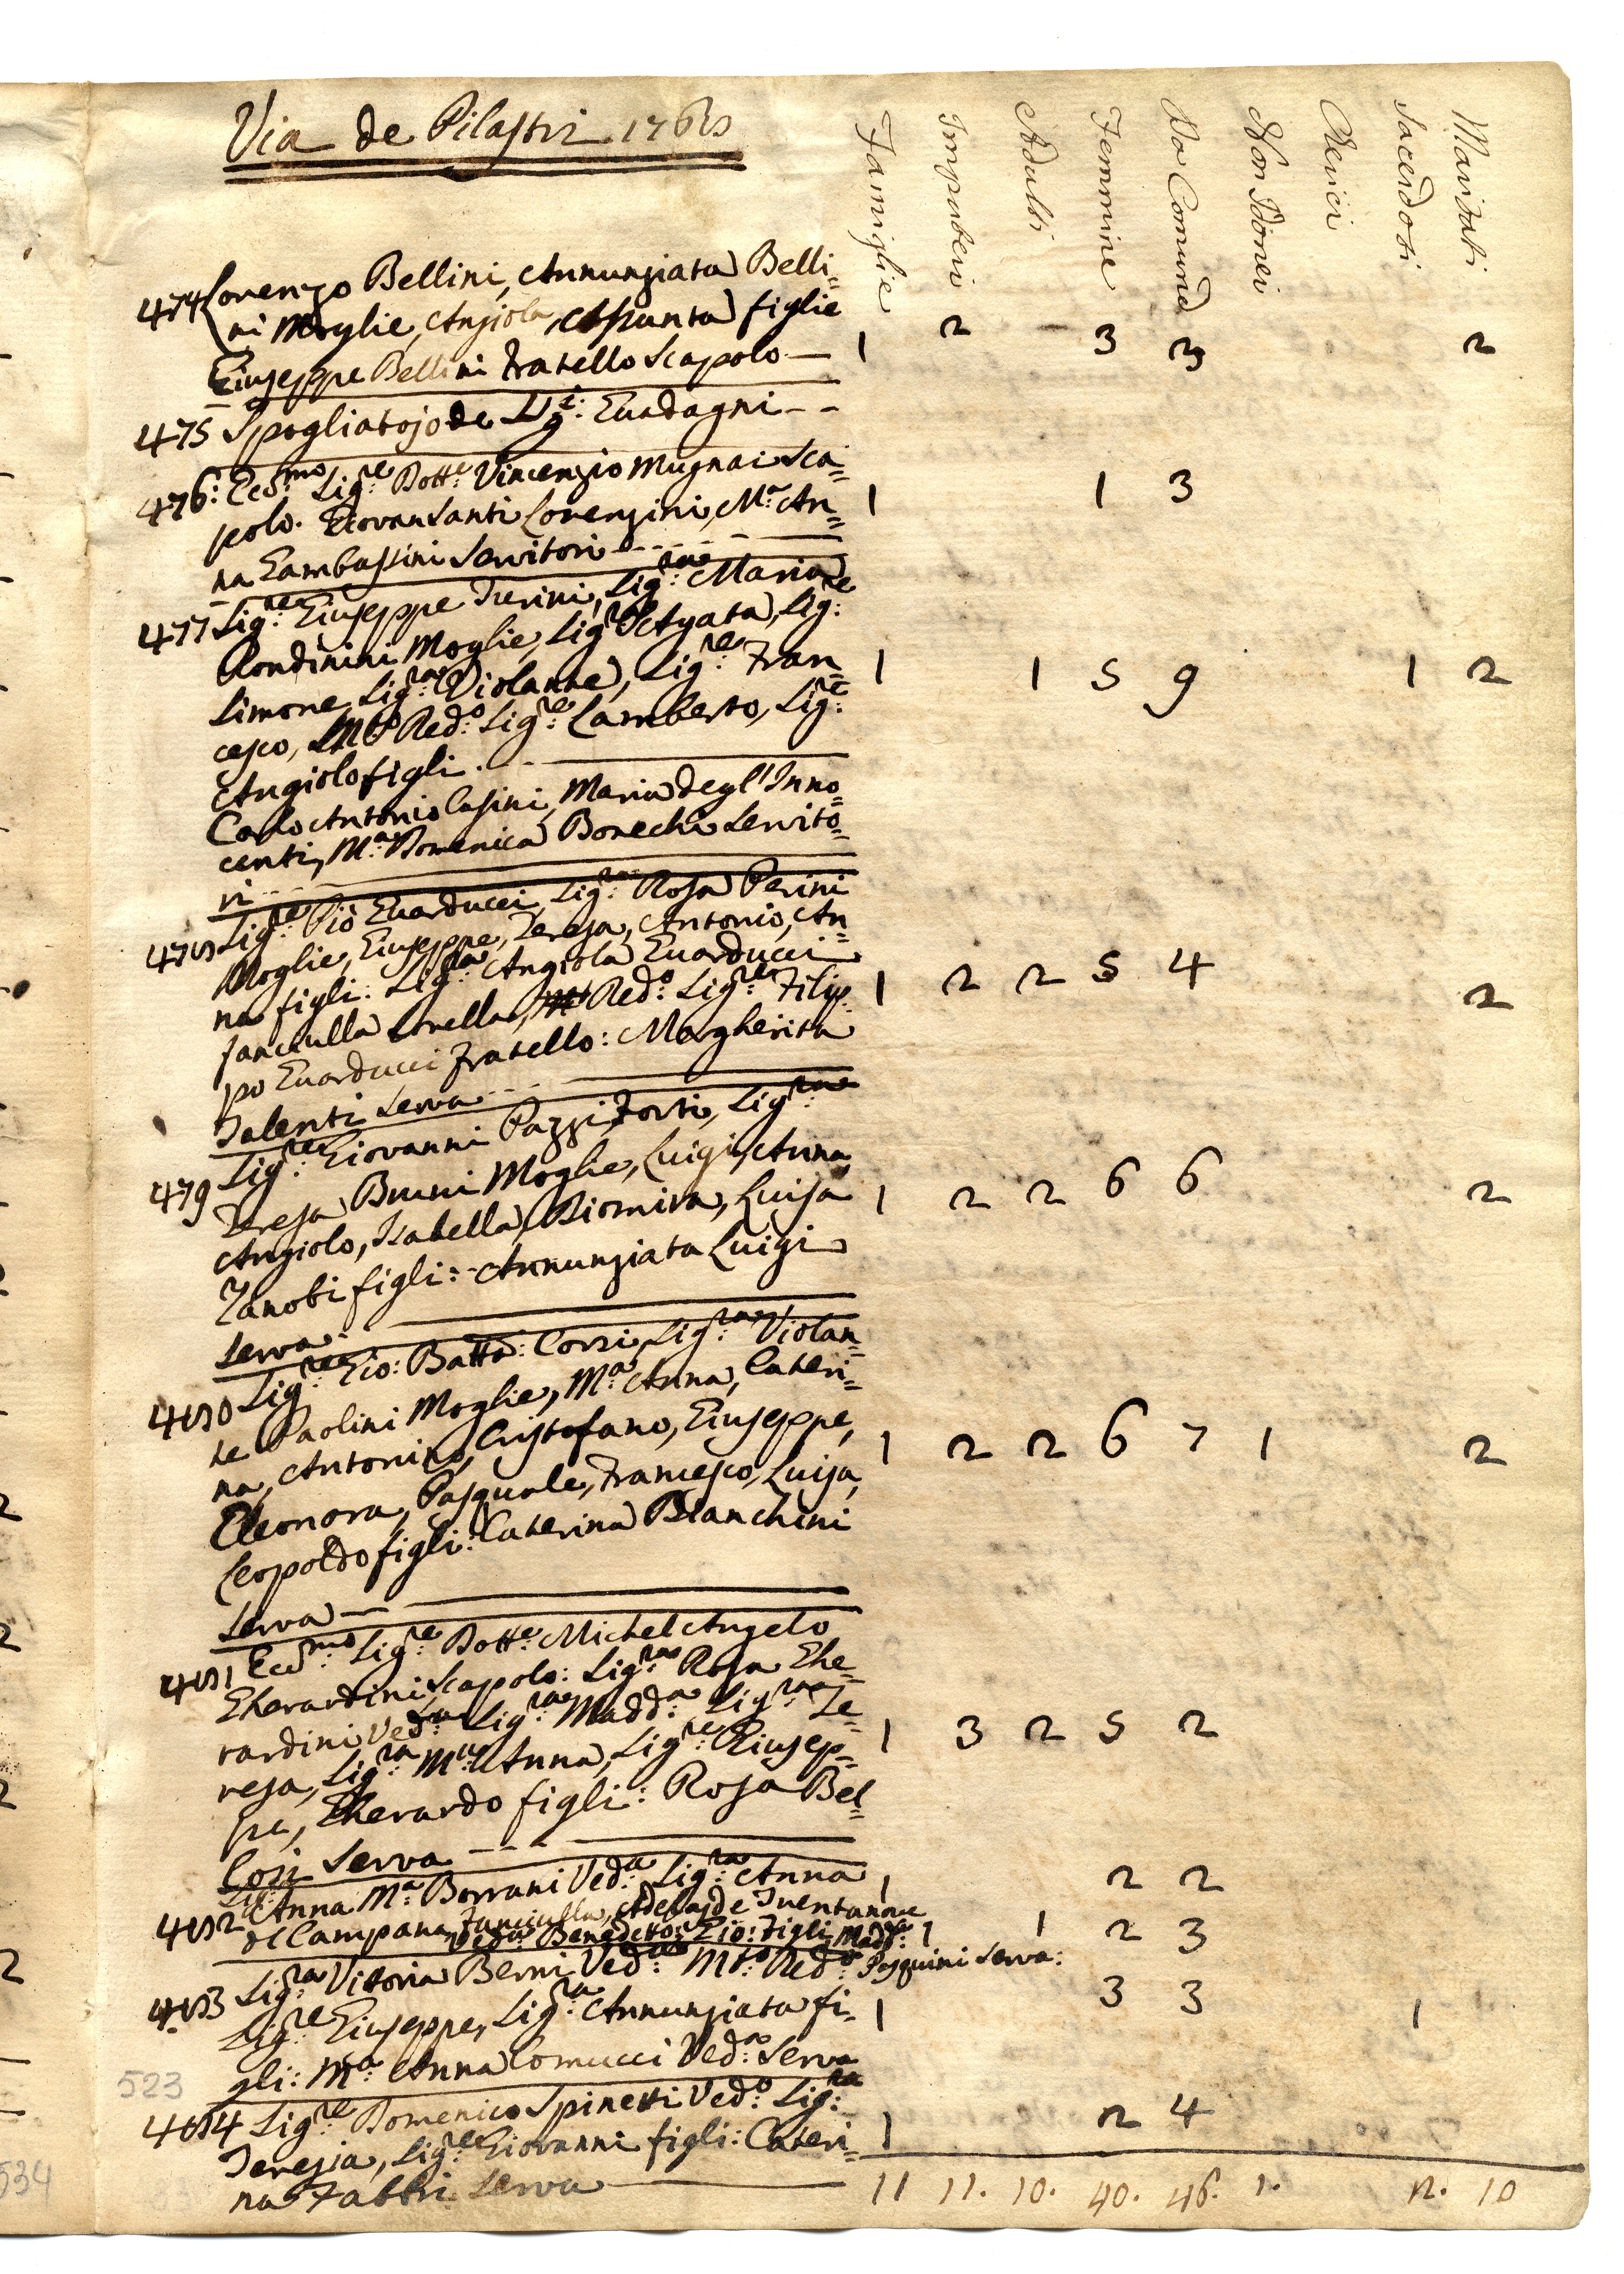 Via de Pilastri 1768
Famiglie Impuberi Adulti Femmine Da Comund Non Idonei Clerici Sacerdoti Maritati
474 Lorenzo Bellini, Annunziata Belli=
ni Moglie, Angiola, Assunta figlie
Giuseppe Bellini Fratello Scapolo — 1 2 - 3 3 2
475 Spogliatojo de Sig:i Guadagni - -
476: Ecc:mo Sig:re Dott:e Vincenzio Mugnai Sca=
polo. Giovan Santi Lorenzini, M:a An= 1 1 3
na Gambassini Servitori
477 Sig:re Giuseppe Frerini, Sig:ra Maria
Rondinini Moglie, Sig:ra Agata, Sig:re
Simone, Sig:ra Violante, Sig:re Fran= 1 1 5 9 1 2
cesco, M:to Red:o Sig:re Lamberto, Sig:re
Angiolo figli.
Carlo Antonio Casini, Maria degl'Inno=
centi, M:a Domenica Bonechi Servito=
ri
478 Sig:re Pio Guarducci, Sig:ra Rosa Perini
Moglie, Giuseppe, Teresa, Antonio, An=
na figli: Sig:ra Angiola Guarducci
fanciulla Sorella, Red:o Sig:re Filip= 1 2 2 5 4 2
po Guarducci Fratello: Margherita
Talenti Serva
479 Sig:re Giovanni Pazzi Forti, Sig:ra
Teresa Bruni Moglie, Luigi, Anna, 1 2 2 6 6 2
Angiolo, Isabella, Diomira, Luisa
Zanobi figli: Annunziata Luigi
Serva
480 Sig:re Gio: Batta: Corsi, Sig:ra Violan=
te Paolini Moglie, M:a Anna, Cateri=
na, Antonino, Cristofano, Giuseppe, 1 2 2 6 7 1 2
Eleonora, Pasquale, Francesco, Luisa,
Leopoldo figli: Caterina Bianchini
Serva —
481 Ecc:mo Sig:re Dott:e Michel Angelo
Gherardini Scapolo: Sig:ra Rosa Ghe=
rardini Ved:a Sig:ra Madd:a Sig:ra Te=
resa, Sig:ra M:a Anna, Sig:re Giusep= 1 3 2 5 2
pe, Gherardo figli: Rosa Bel=
losi Serva
482 Sig:ra Anna M:a Borrani Ved:a Sig:ra Anna 1 2 2
del Campana, Fanciulla, Adelajde
Ved:a Benedetto: Gio: Figli Madd:a 1 1 2 3
Pasquini Serva:
483 Sig:ra Vitoria Berni Ved:a M:to Red:o
Sig:re Giuseppe, Sig:ra Annunziata fi= 1 3 3 1
gli: M:a Anna Comucci Ved:a Serva
523
484 Sig:re Domenico Spinetti Ved:o Sig:ra
Teresia, Sig:re Giovanni figli: Cateri= 1 2 4
na Fabbri Serva
11 11. 10. 40. 46. 1. 2. 10
534